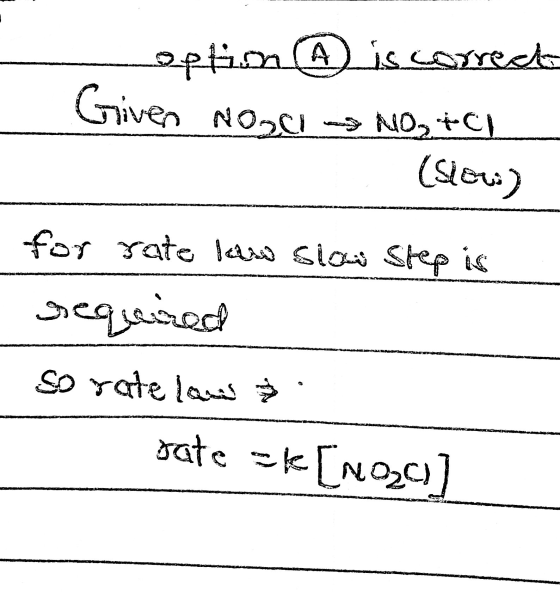 option (A) is correct
Given NO2Cl → NO2 + Cl
(Slow)
for rate law slow step is
required
so rate law ⇒
rate = k[NO2Cl]